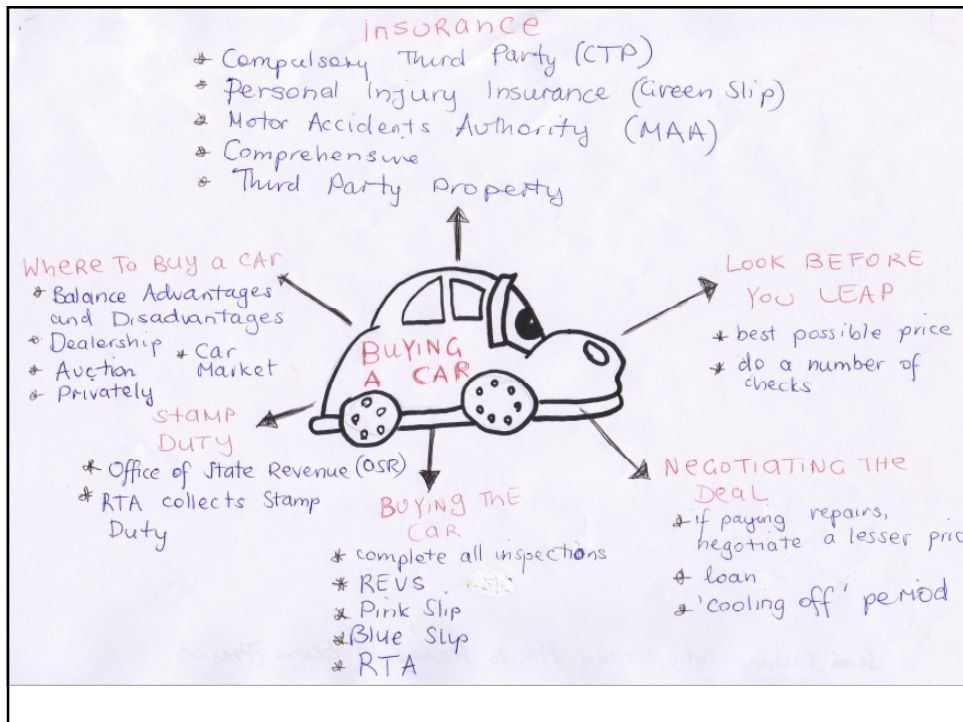 Insurance
* Compulsory Third Party (CTP)
* Personal Injury Insurance (Green Slip)
* Motor Accidents Authority (MAA)
* Comprehensive
* Third Party Property
Where to Buy a Car
* Balance Advantages
and Disadvantages
* Dealership
* Auction
* Privately
* Car
Market
BUYING
A CAR
LOOK BEFORE
YOU LEAP
* best possible price
* do a number of
checks
Stamp
Duty
* Office of State Revenue (OSR)
* RTA collects Stamp
Duty
BUYING THE
CAR
* complete all inspections
* REVS
* Pink Slip
* Blue Slip
* RTA
NEGOTIATING THE
DEAL
* if paying repairs,
negotiate a lesser pric
* loan
* 'cooling off' period